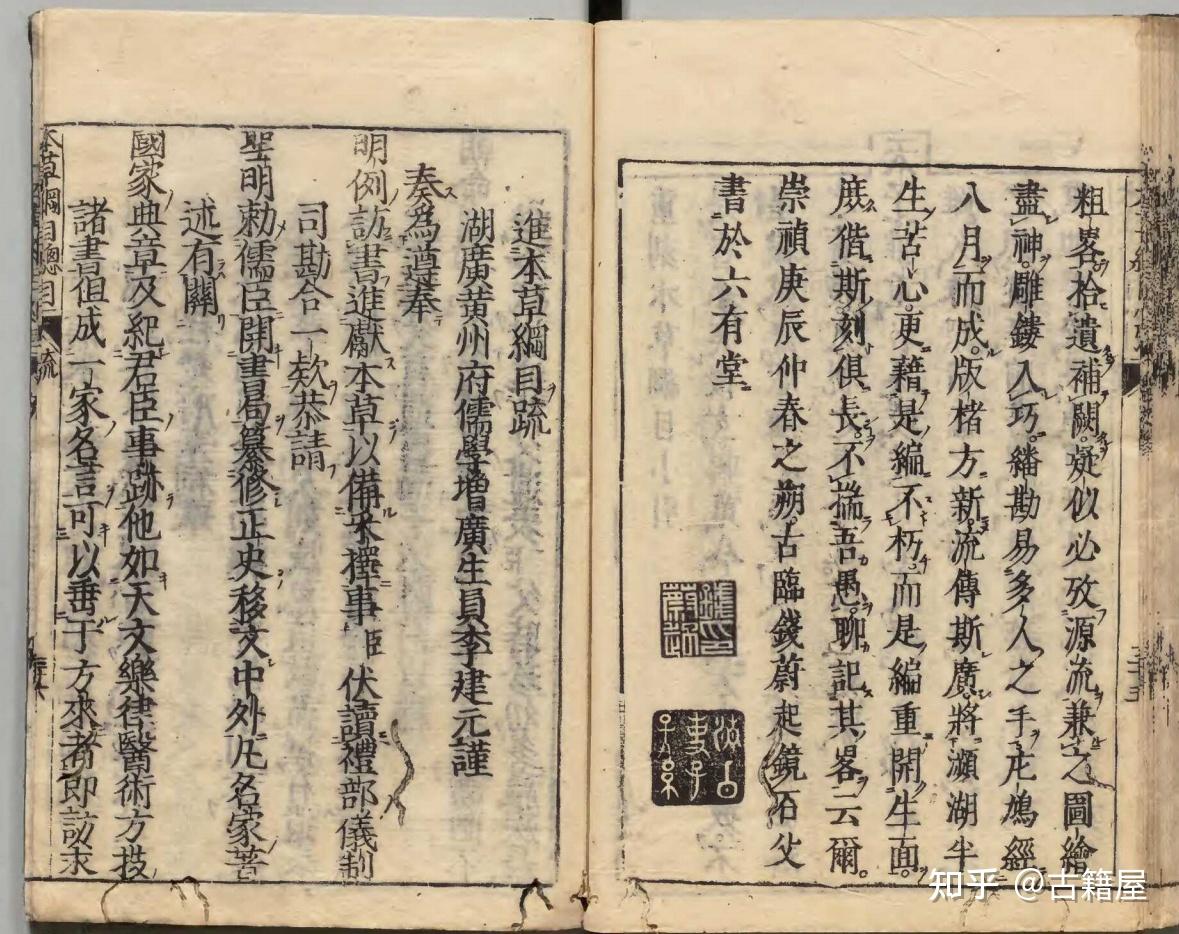 粗畧拾遺補闕凝似必攷源流兼之圖繪
盡神雕鏤入巧繙勘易多人之手庀鳩經
八月而成版楮方新流傳斯廣將瀕湖半
生苦心更藉是編不朽而是編重開生面
庻偕斯刻俱長不揣吾愚聊記其畧云爾
崇禎庚辰仲春之朔古臨錢蔚起鏡石父
書於六有堂
進本草綱目疏
湖廣黄州府儒學增廣生員李建元謹
奏為遵奉
明例訪書進獻本草以備采擇事臣伏讀禮部儀制
司勘合一欵恭請
聖明勅儒臣開書局纂修正史移文中外凢名家著
述有關
國家典章及紀君臣事跡他如天文樂律醫術方技
諸書但成一家名言可以垂于方來者即訪求
本草綱目總目 疏
知乎 @古籍屋